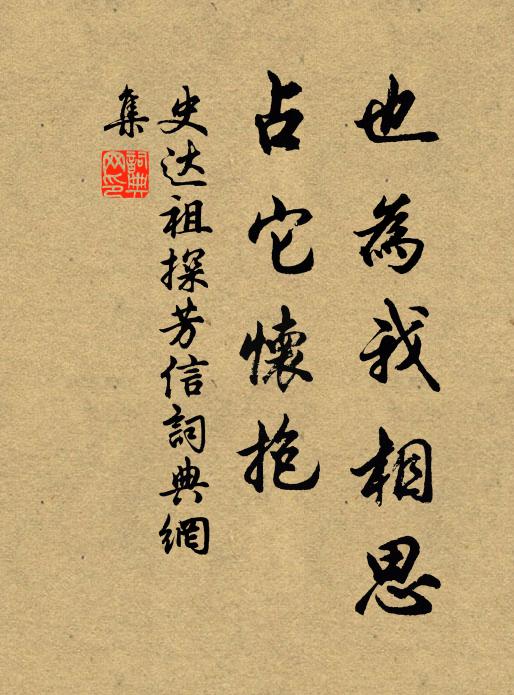 也為我相思
占它懷抱
史达祖探芳信詞典網
集
詞典網印